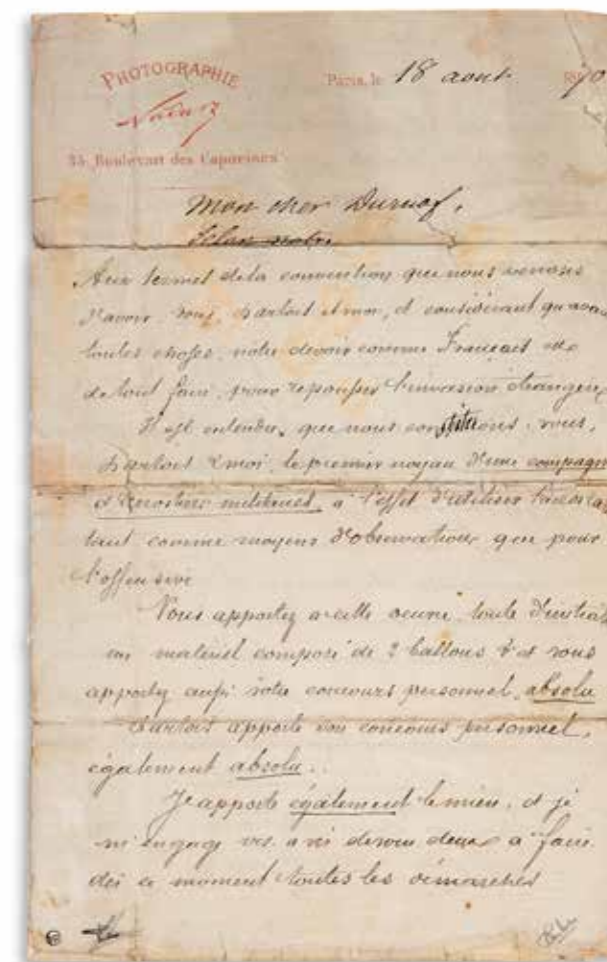 PHOTOGRAPHIE
Nadar
35, Boulevart des Capucines
Paris, le 18 aout 1870
Mon cher Duruof,
Selon notre
Aux termes de la convention que nous venons
d'avoir, vous, Dartois et moi, et considérant qu'avant
toutes choses, notre devoir comme Français est
de tout faire pour repousser l'invasion étrangère
Il est entendu, que nous constituons, vous,
Dartois & moi, le premier noyau d'une compagnie
d'aérostiers militaires, à l'effet d'utiliser
tant comme moyens d'observation que pour
l'offensive
Vous apportez à cette oeuvre, toute d'initiat
un matériel composé de 2 ballons & vous
apportez aussi votre concours personnel, absolu
Dartois apporte son concours personnel,
également absolu.
J'apporte également le mien, et je
m'engage vis à vis de vous deux à faire
dès ce moment toutes les démarches